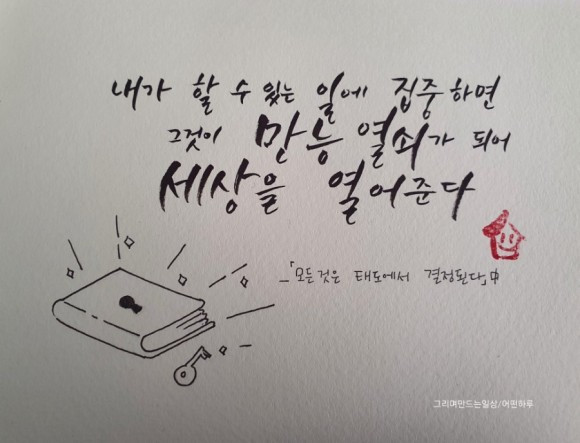 내가 할 수 있는 일에 집중하면
그것이 만능 열쇠가 되어
세상을 열어준다
_「모든 것은 태도에서 결정된다」中
그리며만드는일상/어떤하루